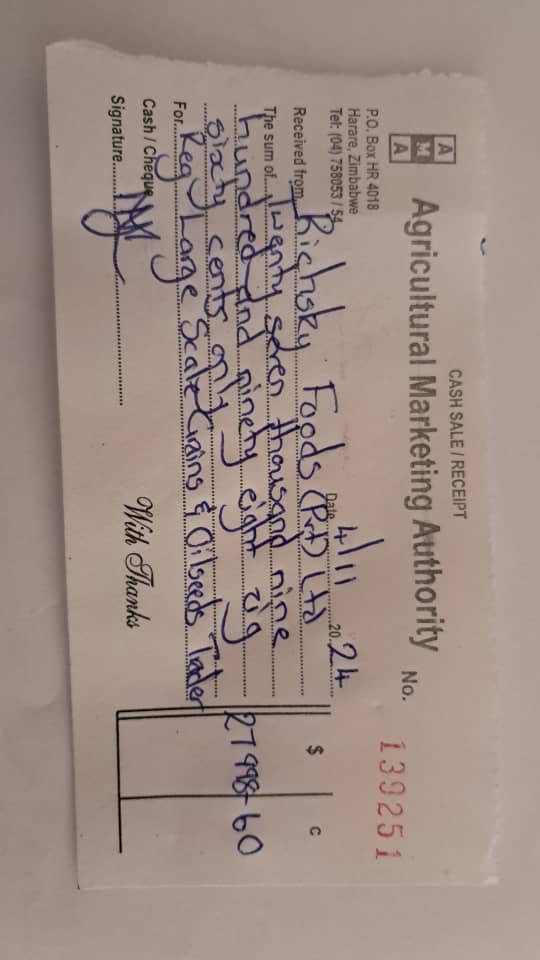 CASH SALE / RECEIPT
A M A
Agricultural Marketing Authority No. 139251
P.O. Box HR 4018
Harare, Zimbabwe
Tel: (04) 758053 / 54
Date 4/11 20 24
Received from Richsky Foods (Pvt) Ltd
$ C
The sum of Twenty seven thousand nine
hundred and ninety eight zig
sixty cents only 27 998-60
For Reg Large Scale Grains & Oilseeds Trader
Cash / Cheque
With Thanks
Signature